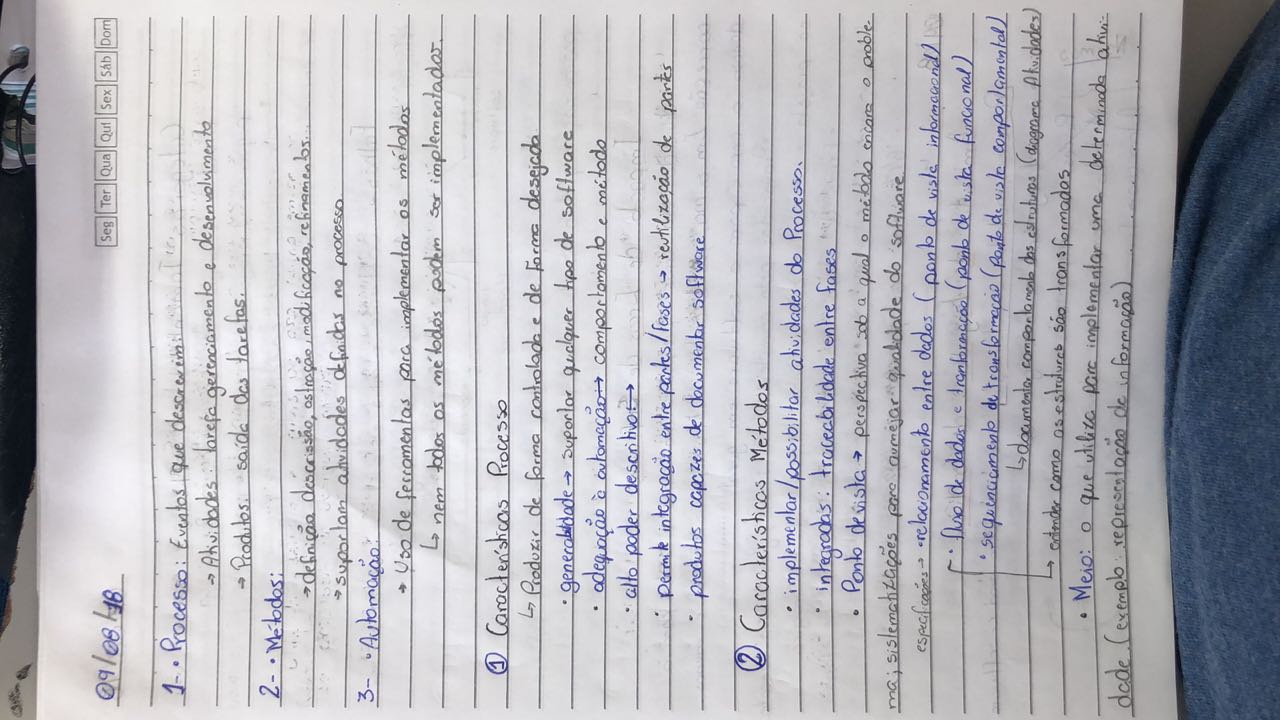 Seg Ter Qua Qui Sex Sáb Dom
09/08/18
1-• Processo: Eventos que descrevem
→ Atividades: tarefa gerenciamento e desenvolvimento
→ Produtos: saída das tarefas.
2-• Métodos:
→ definição, descrissão, astração, modificação, refinamentos...
→ suportam atividades definidas no processo
3- • Automação:
→ Uso de ferramentas para implementar os métodos
↳ nem todos os métodos podem ser implementados.
① Características Processo
↳ Produzir de forma controlada e de forma desejada
• generalidade → suportar qualquer tipo de software
• adequação à automação → comportamento e método
• alto poder descritivo →
• permite integração entre partes/fases → reutilização de partes
• produtos capazes de documentar software
② Características Métodos
• implementar/possibilitar atividades do Processo.
• integrados: traceabilidade entre fases
• Ponto de vista → perspectiva sob a qual o método encara o proble-
ma; sistematizações para almejar qualidade do software
especificações → • relacionamento entre dados (ponto de vista informacional)
• fluxo de dados e tranformação (ponto de vista funcional)
• sequenciamento de transformação (ponto de vista comportamental)
↳ documentar comportamento das estruturas (diagrama Atividades)
↳ entender como as estruturas são transformados
• Meio: o que utiliza para implementar uma determinada ativi-
dade. (exemplo: representação de informação)